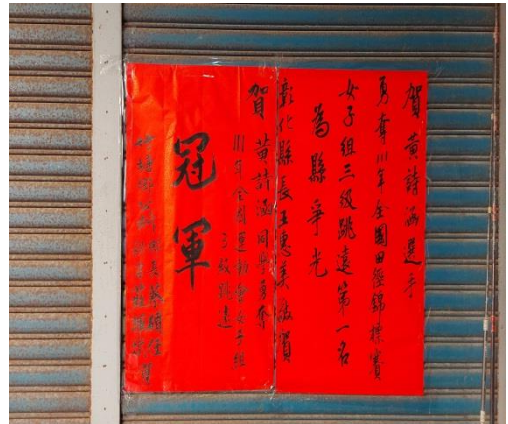 賀 黃詩涵選手
勇奪111年全國田徑錦標賽
女子組三級跳遠第一名
為縣爭光
彰化縣長王惠美敬賀
賀 黃詩涵同學勇奪
111年全國運動會女子組
三級跳遠
冠軍